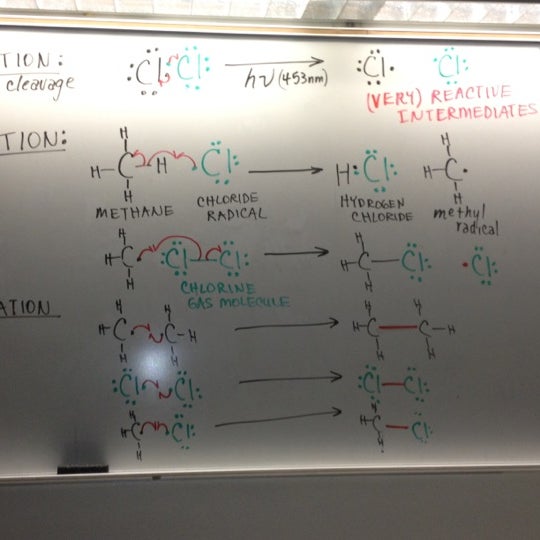 TION: :Cl Cl: hν (453nm) :Cl· Cl:
cleavage (VERY) REACTIVE
INTERMEDIATES
TION:
H H
H–C–H Cl: H:Cl: H–C·
H H
METHANE CHLORIDE RADICAL HYDROGEN CHLORIDE methyl radical
H H
H–C :Cl–Cl: H–C–Cl: ·Cl:
H H
CHLORINE
GAS MOLECULE
ATION
H H H H
H–C C–H H–C–C–H
H H H H
:Cl Cl: :Cl–Cl:
H H
H–C Cl: H–C–Cl:
H H